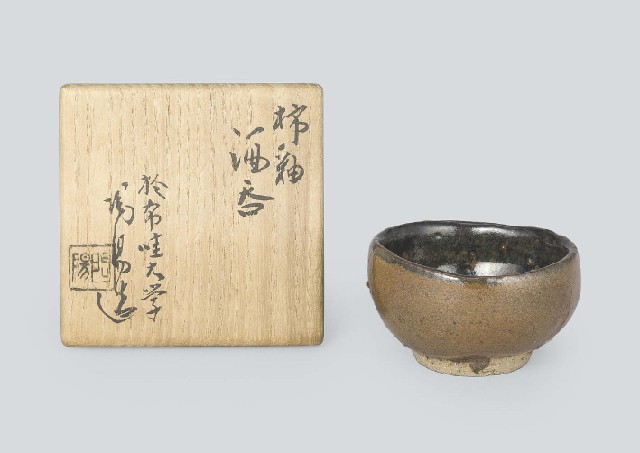 柿釉
酒呑
於布哇大学
陶陽造
陶陽